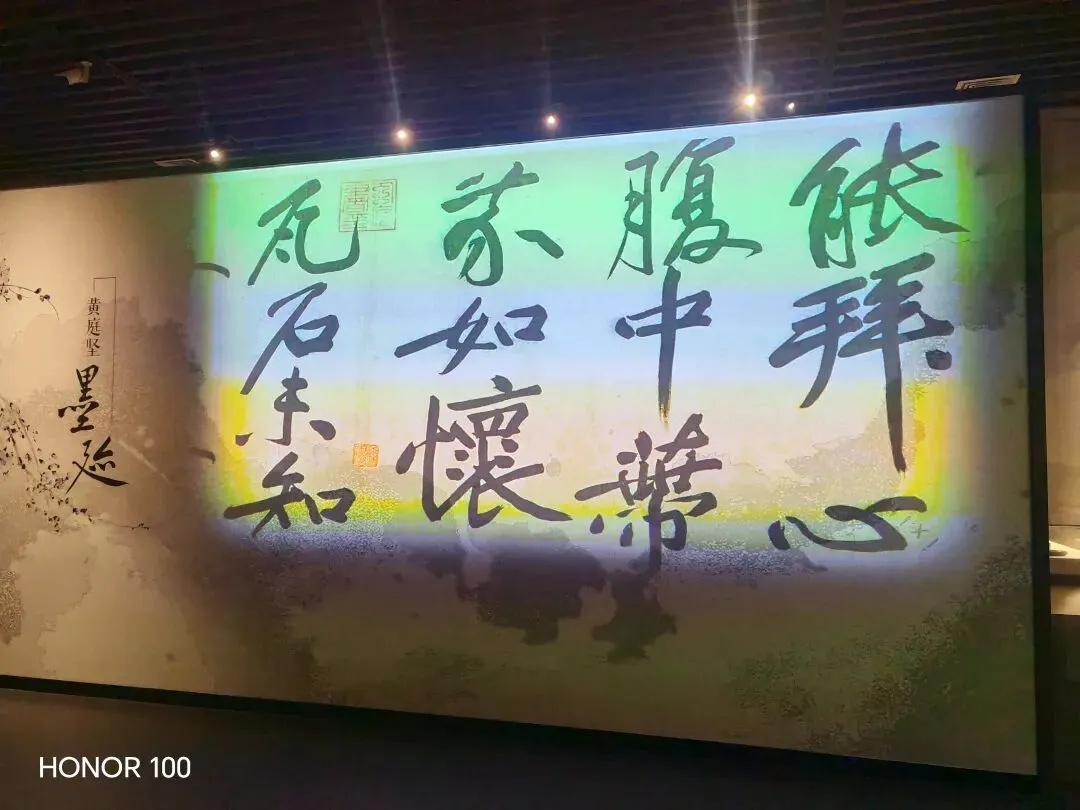 能拜心
腹中蔕
芥如懷
瓦石未知
黄庭坚
墨迹
HONOR 100